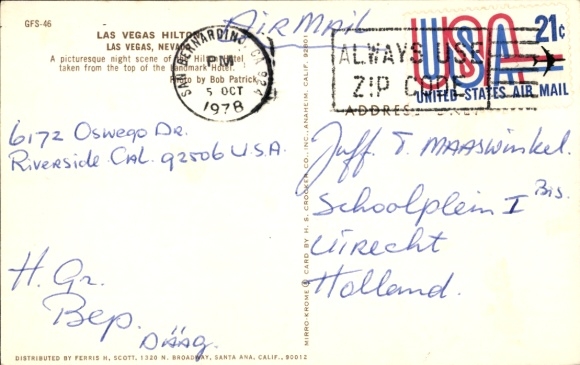 GFS-46
LAS VEGAS HILTON
LAS VEGAS, NEVADA
A picturesque night scene of Hilton Hotel
taken from the top of the Landmark Hotel.
Photo by Bob Patrick
Air Mail
SAN BERNARDINO, CA 924
PM
5 OCT
1978
ALWAYS USE
ZIP CODE
ADDRESS ONLY
USA 21c
UNITED STATES AIR MAIL
6172 Oswego Dr.
Riverside Cal. 92506 U.S.A.
H. Gr.
Bep.
Dääg.
Juff. T. Maaswinkel.
Schoolplein I Bis.
Utrecht
Holland.
MIRRO-KROME CARD BY H. S. CROCKER CO., INC., ANAHEIM, CALIF. 92801
DISTRIBUTED BY FERRIS H. SCOTT, 1320 N. BROADWAY, SANTA ANA, CALIF., 90012